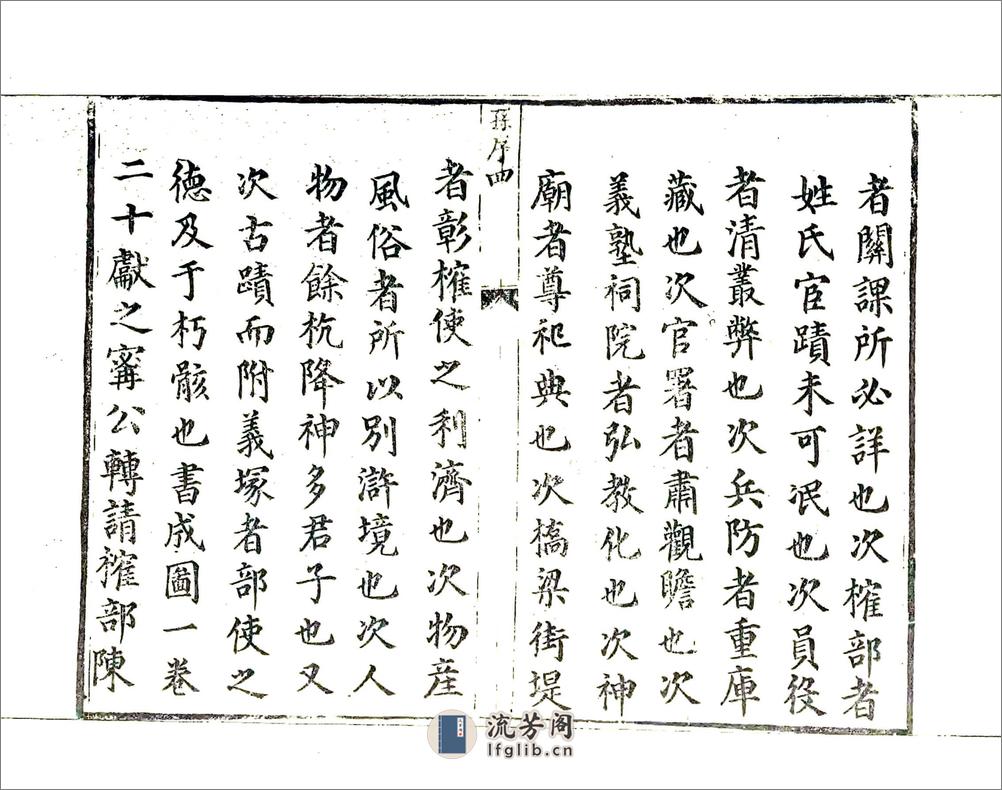 者關課所必詳也次榷部者
姓氏宦蹟未可泯也次員役
者清叢弊也次兵防者重庫
藏也次官署者肅觀瞻也次
義塾祠院者弘教化也次神
廟者尊祀典也次橋梁街堤
孫序四
者彰榷使之利濟也次物産
風俗者所以别滸境也次人
物者餘杭降神多君子也又
次古蹟而附義塚者部使之
德及于朽骸也書成圖一卷
二十獻之寗公轉請榷部陳
流芳阁
lfglib.cn